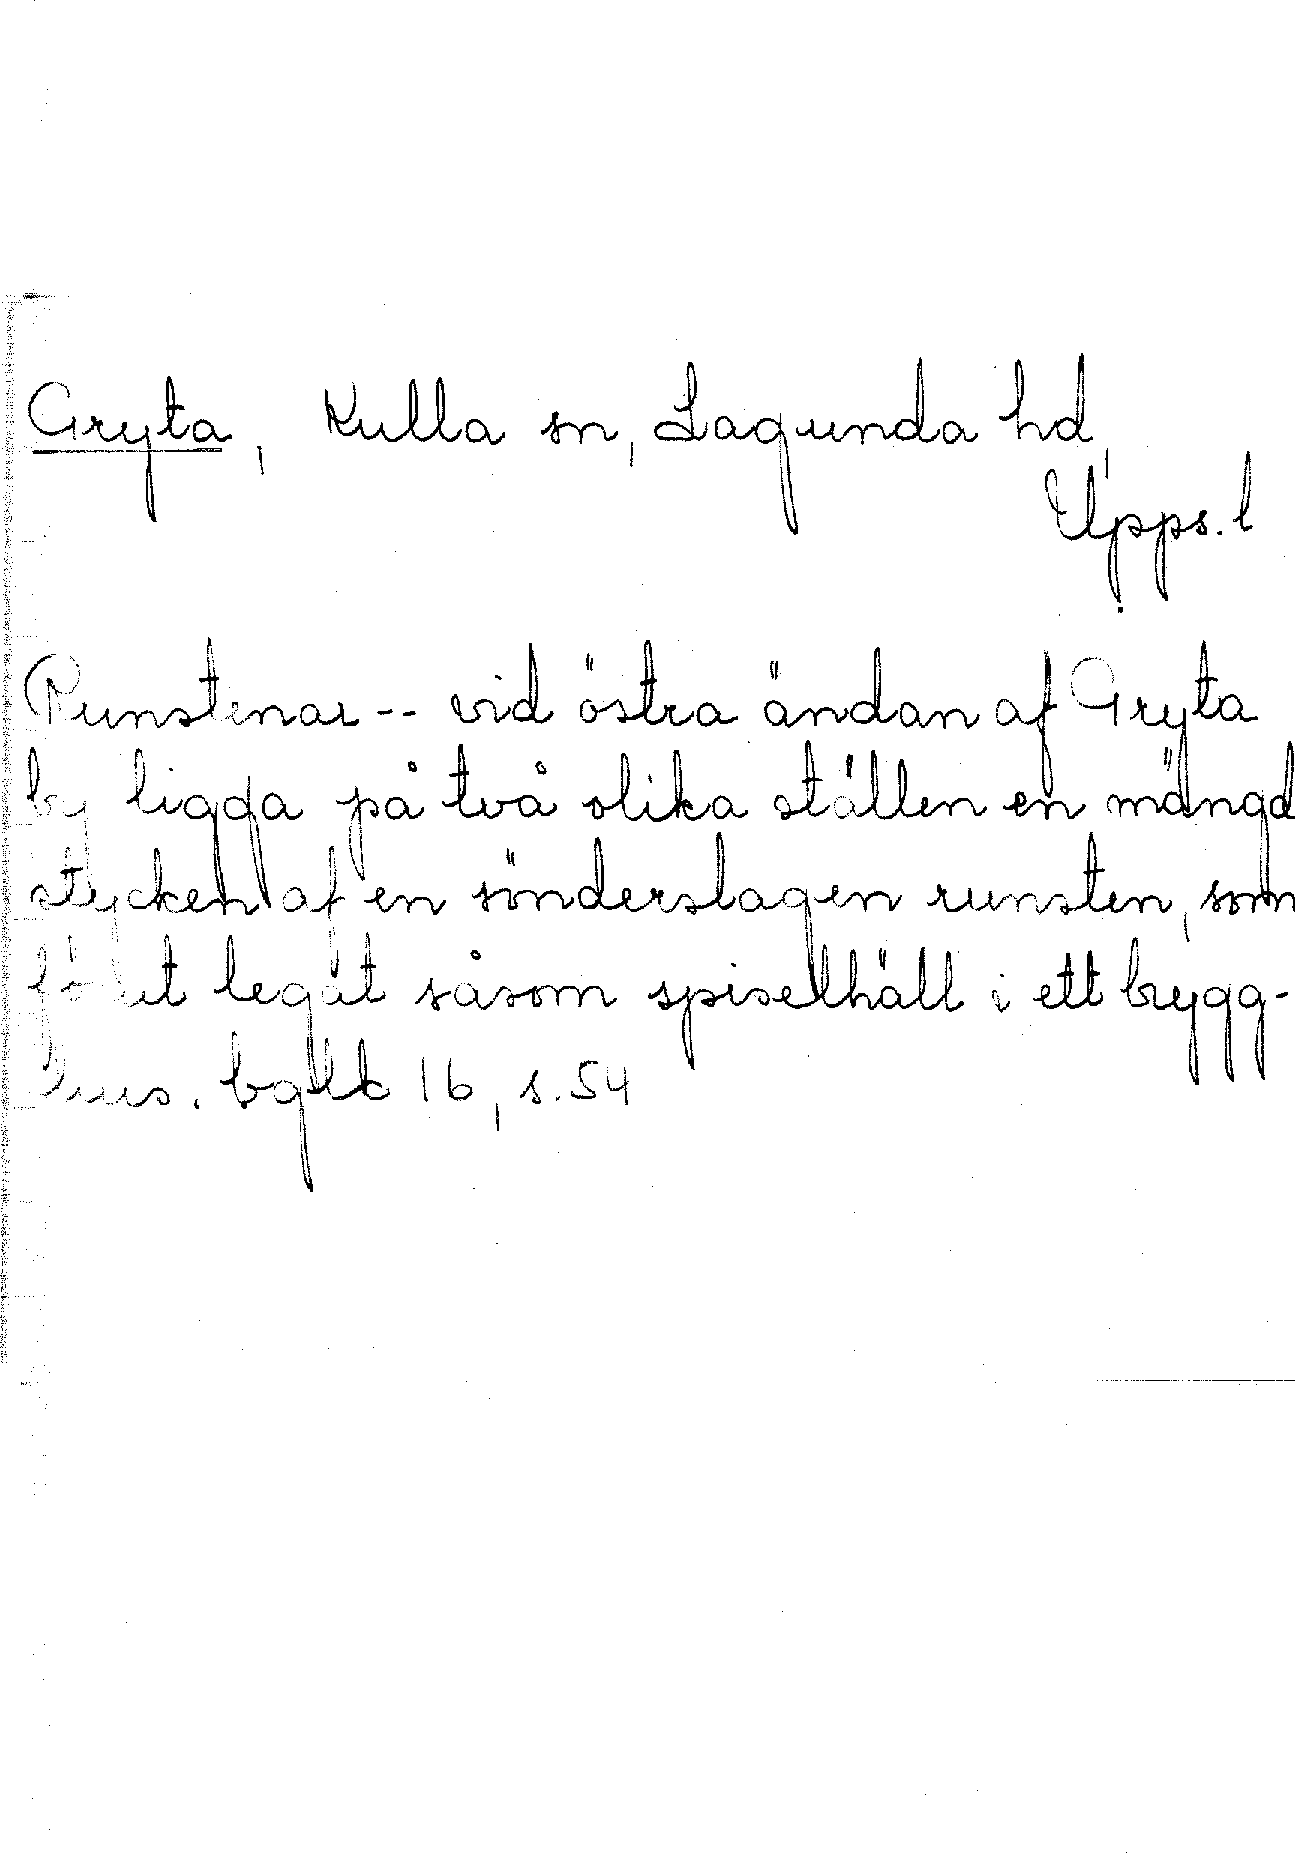 Gryta, Kulla sn, Lagunda hd,
Upps. l
Runstenar -- vid östra ändan af Gryta
by ligga på två olika ställen en mängd
stycken af en sönderslagen runsten, som
förut legat såsom spiselhäll i ett brygg-
hus. 16, s. 54